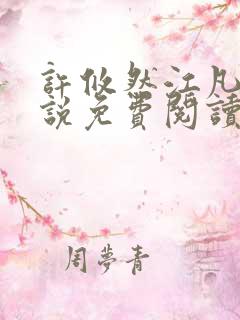 許攸然江凡
說免費閱讀
周夢青